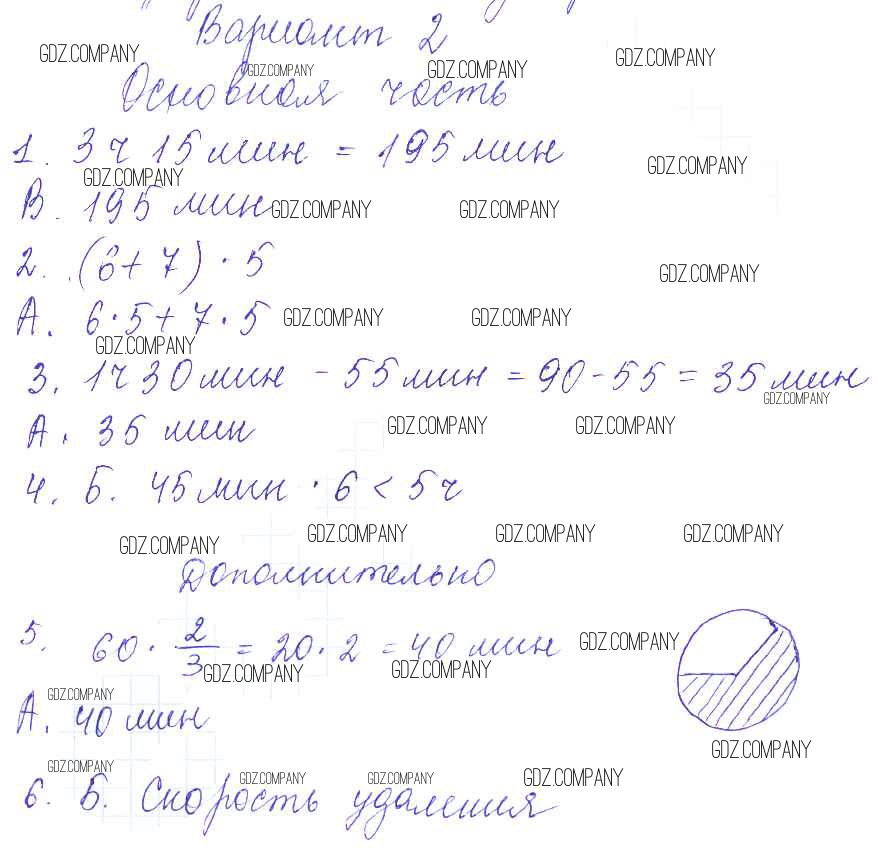 Вариант 2
GDZ.COMPANY GDZ.COMPANY GDZ.COMPANY GDZ.COMPANY
Основная часть
1. 3 ч 15 мин = 195 мин
GDZ.COMPANY GDZ.COMPANY
В. 195 мин GDZ.COMPANY GDZ.COMPANY
2. (6+7)·5
GDZ.COMPANY
А. 6·5+7·5 GDZ.COMPANY GDZ.COMPANY
GDZ.COMPANY
3. 1ч 30 мин - 55 мин = 90-55 = 35 мин
GDZ.COMPANY
А. 35 мин GDZ.COMPANY GDZ.COMPANY
4. Б. 45 мин · 6 < 5 ч
GDZ.COMPANY GDZ.COMPANY GDZ.COMPANY GDZ.COMPANY
Дополнительно
5. 60 · 2/3 = 20·2 = 40 мин GDZ.COMPANY
GDZ.COMPANY GDZ.COMPANY
GDZ.COMPANY
А. 40 мин
GDZ.COMPANY
GDZ.COMPANY GDZ.COMPANY GDZ.COMPANY GDZ.COMPANY
6. Б. Скорость удаления